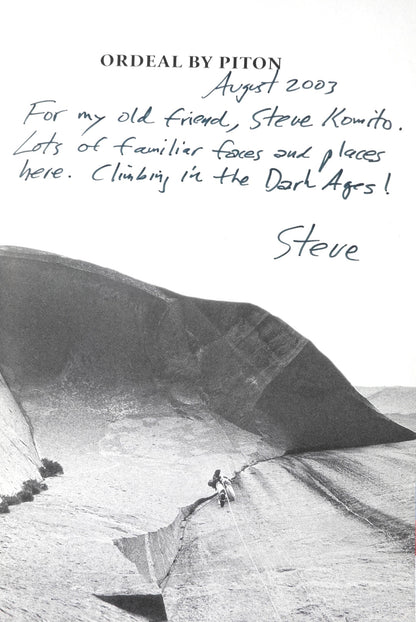 ORDEAL BY PITON
August 2003
For my old friend, Steve Komito.
Lots of familiar faces and places
here. Climbing in the Dark Ages!
Steve